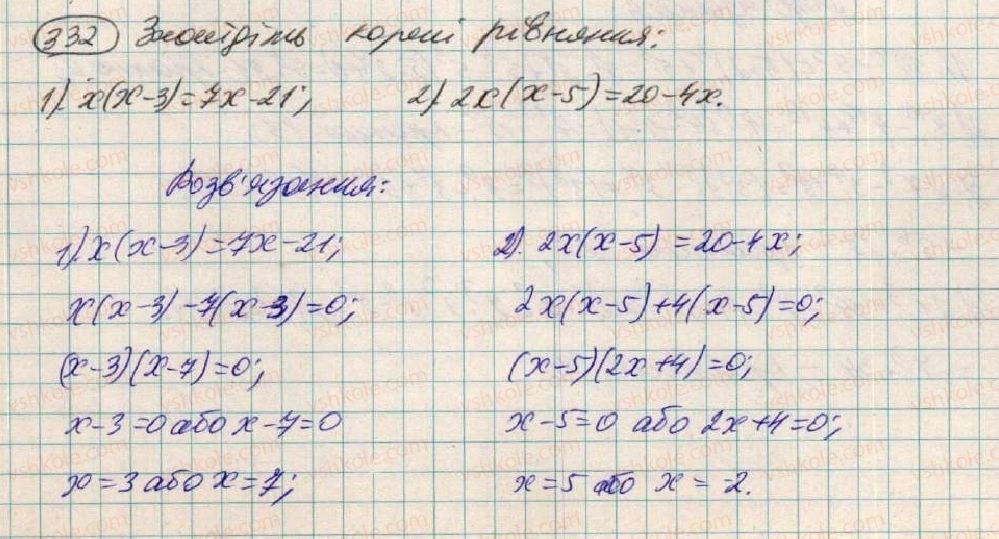 332 Знайдіть корені рівняння:
1) x(x-3)=7x-21; 2) 2x(x-5)=20-4x.
Розв'язання:
1) x(x-3)=7x-21;
x(x-3)-7(x-3)=0;
(x-3)(x-7)=0;
x-3=0 або x-7=0
x=3 або x=7;
2). 2x(x-5)=20-4x;
2x(x-5)+4(x-5)=0;
(x-5)(2x+4)=0;
x-5=0 або 2x+4=0;
x=5 або x=-2.